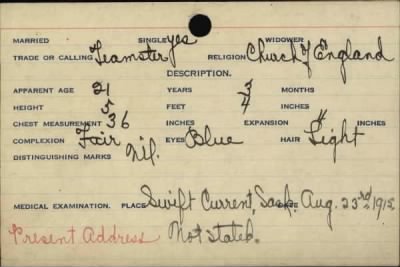 MARRIED SINGLE yes WIDOWER
TRADE OR CALLING Teamster RELIGION Church of England
DESCRIPTION.
APPARENT AGE 21 YEARS 3 MONTHS
HEIGHT 5 FEET 4 INCHES
CHEST MEASUREMENT 36 INCHES EXPANSION 4 INCHES
COMPLEXION Fair EYES Blue HAIR Light
DISTINGUISHING MARKS Nil.
MEDICAL EXAMINATION. PLACE Swift Current, Sask. Aug. 23rd 1915
Present Address Not stated.